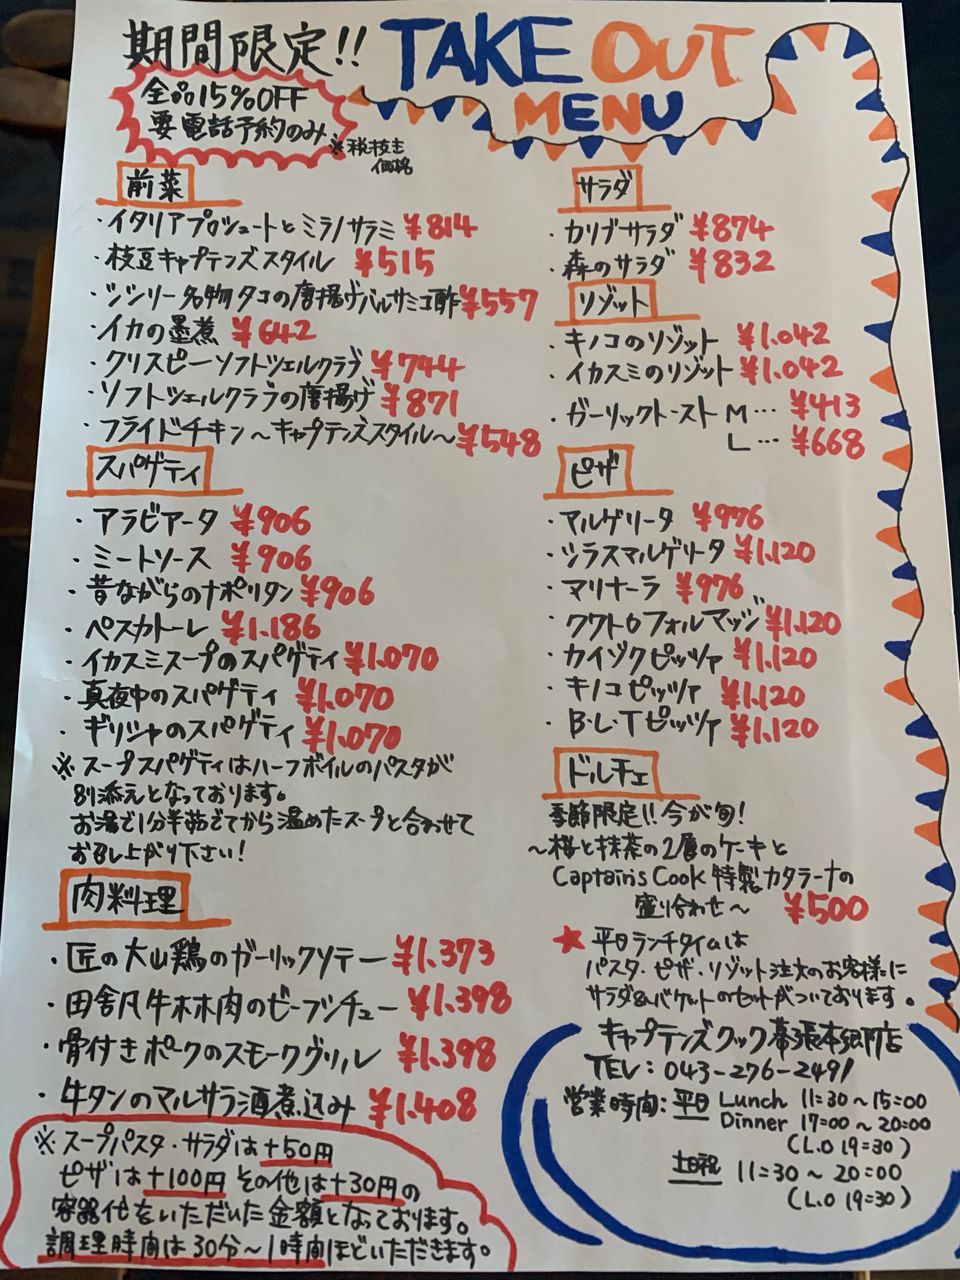 期間限定!!
TAKE OUT
MENU
全品15%OFF
要電話予約のみ
※税抜き
価格
前菜
・イタリアプロシュートとミラノサラミ ¥814
・枝豆キャプテンズスタイル ¥515
・シシリー名物タコの唐揚げバルサミコ酢 ¥557
・イカの墨煮 ¥642
・クリスピーソフトシェルクラブ ¥744
・ソフトシェルクラブの唐揚げ ¥871
・フライドチキン〜キャプテンズスタイル〜 ¥548
スパゲティ
・アラビアータ ¥906
・ミートソース ¥906
・昔ながらのナポリタン ¥906
・ペスカトーレ ¥1.186
・イカスミスープのスパゲティ ¥1.070
・真夜中のスパゲティ ¥1.070
・ギリシャのスパゲティ ¥1.070
※スープスパゲティはハーフボイルのパスタが
別添えとなっております。
お湯で1分半茹でてから温めたスープと合わせて
お召し上がり下さい!
肉料理
・匠の大山鶏のガーリックソテー ¥1.373
・田舎風牛ホホ肉のビーフシチュー ¥1.398
・骨付きポークのスモークグリル ¥1.398
・牛タンのマルサラ酒煮込み ¥1.408
※スープパスタ・サラダは+50円
ピザは+100円 その他は+30円の
容器代をいただいた金額となっております。
調理時間は30分〜1時間ほどいただきます。
サラダ
・カリブサラダ ¥874
・森のサラダ ¥832
リゾット
・キノコのリゾット ¥1.042
・イカスミのリゾット ¥1.042
・ガーリックトースト M… ¥413
L… ¥668
ピザ
・マルゲリータ ¥976
・シラスマルゲリータ ¥1.120
・マリナーラ ¥976
・クワトロフォルマッジ ¥1.120
・カイゾクピッツァ ¥1.120
・キノコピッツァ ¥1.120
・B・L・Tピッツァ ¥1.120
ドルチェ
季節限定!!今が旬!
〜桜と抹茶の2層のケーキと
Captain's Cook 特製カタラーナの
盛り合わせ〜 ¥500
★平日ランチタイムは
パスタ・ピザ・リゾット注文のお客様に
サラダ&バケットのセットがついております。
キャプテンズクック幕張本郷店
TEL:043-276-2491
営業時間:平日 Lunch 11:30〜15:00
Dinner 17:00〜20:00
(L.O 19:30)
土日祝 11:30〜20:00
(L.O 19:30)